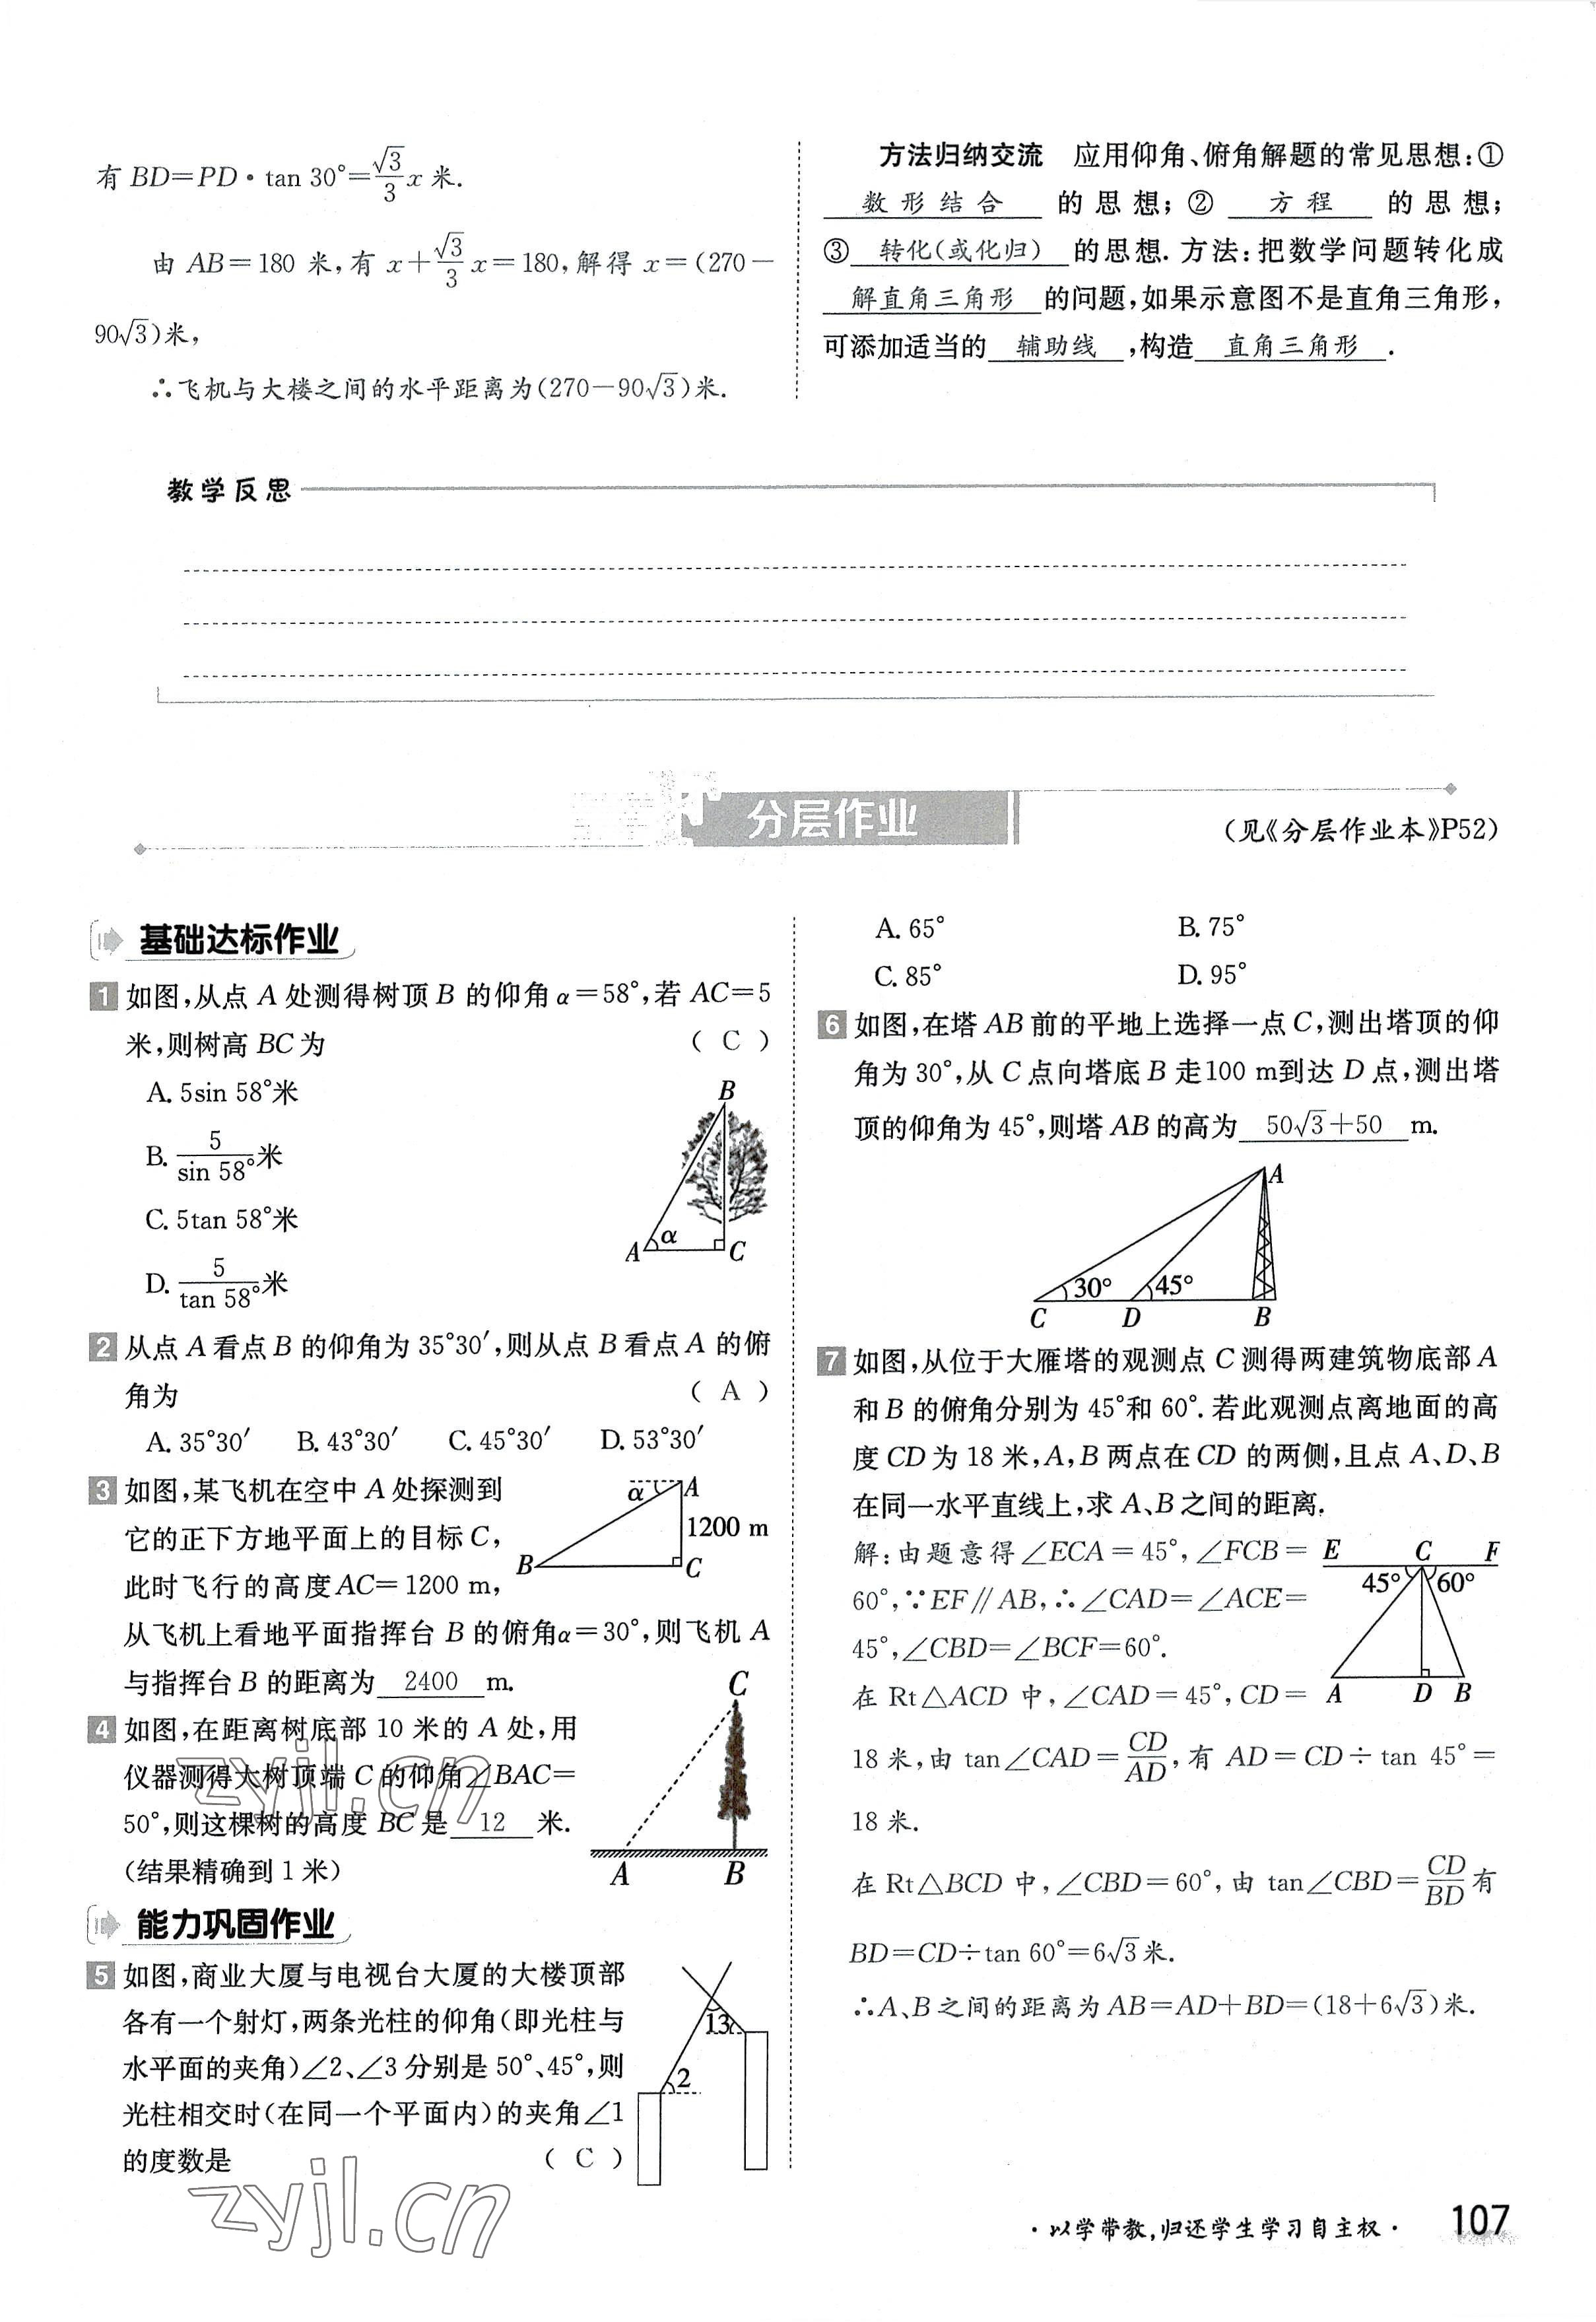 有 BD=PD·tan 30°=√3/3 x 米.
由 AB=180 米,有 x+√3/3 x=180,解得 x=(270-
90√3)米,
∴飞机与大楼之间的水平距离为(270-90√3)米.
方法归纳交流 应用仰角、俯角解题的常见思想:①
数形结合 的思想;② 方程 的思想;
③ 转化(或化归) 的思想.方法:把数学问题转化成
解直角三角形 的问题,如果示意图不是直角三角形,
可添加适当的 辅助线 ,构造 直角三角形 .
教学反思
分层作业
(见《分层作业本》P52)
基础达标作业
1 如图,从点 A 处测得树顶 B 的仰角 α=58°,若 AC=5
米,则树高 BC 为 ( C )
A. 5sin 58°米
B. 5/sin 58° 米
C. 5tan 58°米
D. 5/tan 58° 米
B
A α C
2 从点 A 看点 B 的仰角为 35°30′,则从点 B 看点 A 的俯
角为 ( A )
A. 35°30′ B. 43°30′ C. 45°30′ D. 53°30′
3 如图,某飞机在空中 A 处探测到
它的正下方地平面上的目标 C,
此时飞行的高度 AC=1200 m,
从飞机上看地平面指挥台 B 的俯角α=30°,则飞机 A
与指挥台 B 的距离为 2400 m.
α A
1200 m
B C
4 如图,在距离树底部 10 米的 A 处,用
仪器测得大树顶端 C 的仰角∠BAC=
50°,则这棵树的高度 BC 是 12 米.
(结果精确到 1 米)
C
A B
zyjl.cn
能力巩固作业
5 如图,商业大厦与电视台大厦的大楼顶部
各有一个射灯,两条光柱的仰角(即光柱与
水平面的夹角)∠2、∠3 分别是 50°、45°,则
光柱相交时(在同一个平面内)的夹角∠1
的度数是 ( C )
1 3
2
zyjl.cn
A. 65° B. 75°
C. 85° D. 95°
6 如图,在塔 AB 前的平地上选择一点 C,测出塔顶的仰
角为 30°,从 C 点向塔底 B 走100 m到达 D 点,测出塔
顶的仰角为 45°,则塔 AB 的高为 50√3+50 m.
A
30° 45°
C D B
7 如图,从位于大雁塔的观测点 C 测得两建筑物底部 A
和 B 的俯角分别为 45°和 60°.若此观测点离地面的高
度 CD 为 18 米,A,B 两点在 CD 的两侧,且点 A、D、B
在同一水平直线上,求 A、B 之间的距离.
解:由题意得∠ECA=45°,∠FCB=
60°,∵EF∥AB,∴∠CAD=∠ACE=
45°,∠CBD=∠BCF=60°.
在 Rt△ACD 中,∠CAD=45°,CD=
18 米,由 tan∠CAD=CD/AD,有 AD=CD÷tan 45°=
18 米.
在 Rt△BCD 中,∠CBD=60°,由 tan∠CBD=CD/BD有
BD=CD÷tan 60°=6√3米.
∴A、B 之间的距离为 AB=AD+BD=(18+6√3)米.
E C F
45° 60°
A D B
·以学带教,归还学生学习自主权·
107